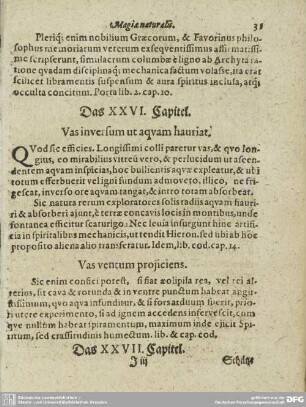 Magiæ naturalis. 31
Pleriq; enim nobilium Græcorum, & Favorinus philo-
sophus memoriarum veterum exseqventissimus affirmatissi-
me scripserunt, simulacrum columbæ è ligno ab Archyta ra-
tione qvadam disciplinaq; mechanica factum volasse, ita erat
scilicet libramentis suspensum & aura spiritus inclusa, atq;
occulta concitum. Porta lib. 2. cap. 10.
Das XXVI. Capitel.
Vas inversum ut aqvam hauriat.
QVod sic efficies. Longissimi colli paretur vas, & qvo lon-
gius, eo mirabilius vitreũ vero, & perlucidum ut ascen-
dentem aqvam inspicias, hoc bullientis aqvæ expleatur, & ubi
totum efferbuerit vel igni fundum admoveto, illico, ne fri-
gescat, inverso ore aqvam tangat, & intro totam absorbeat.
Sic natura rerum exploratores solis radiis aqvam hauri-
ri & absorberi ajunt, è terræ concavis locis in montibus, unde
fontanea efficitur scaturigo: Nec levia insurgunt hinc artifi-
tia in spiritalibus mechanicis, ut tendit Hieron. sed ubi ab hoc
proposito aliena alio transferatur. Idem, lib. cod. cap. 14.
Vas ventum projiciens.
Sic enim confici potest, si fiat æolipila rea, vel rei al-
terius, sit cava & rotunda & in ventre punctum habeat angu-
stissimum, qvo aqva infunditur, & si fors arduum fuerit, prio-
ri utere experimento, si ad ignem accedens infervescit, cum
qve nullum habeat spiramentum, maximum inde ejicit Spi-
ritum, sed crassitudinis humectum. lib. & cap. cod.
Das XXVII. Capitel.
J iij Schütze